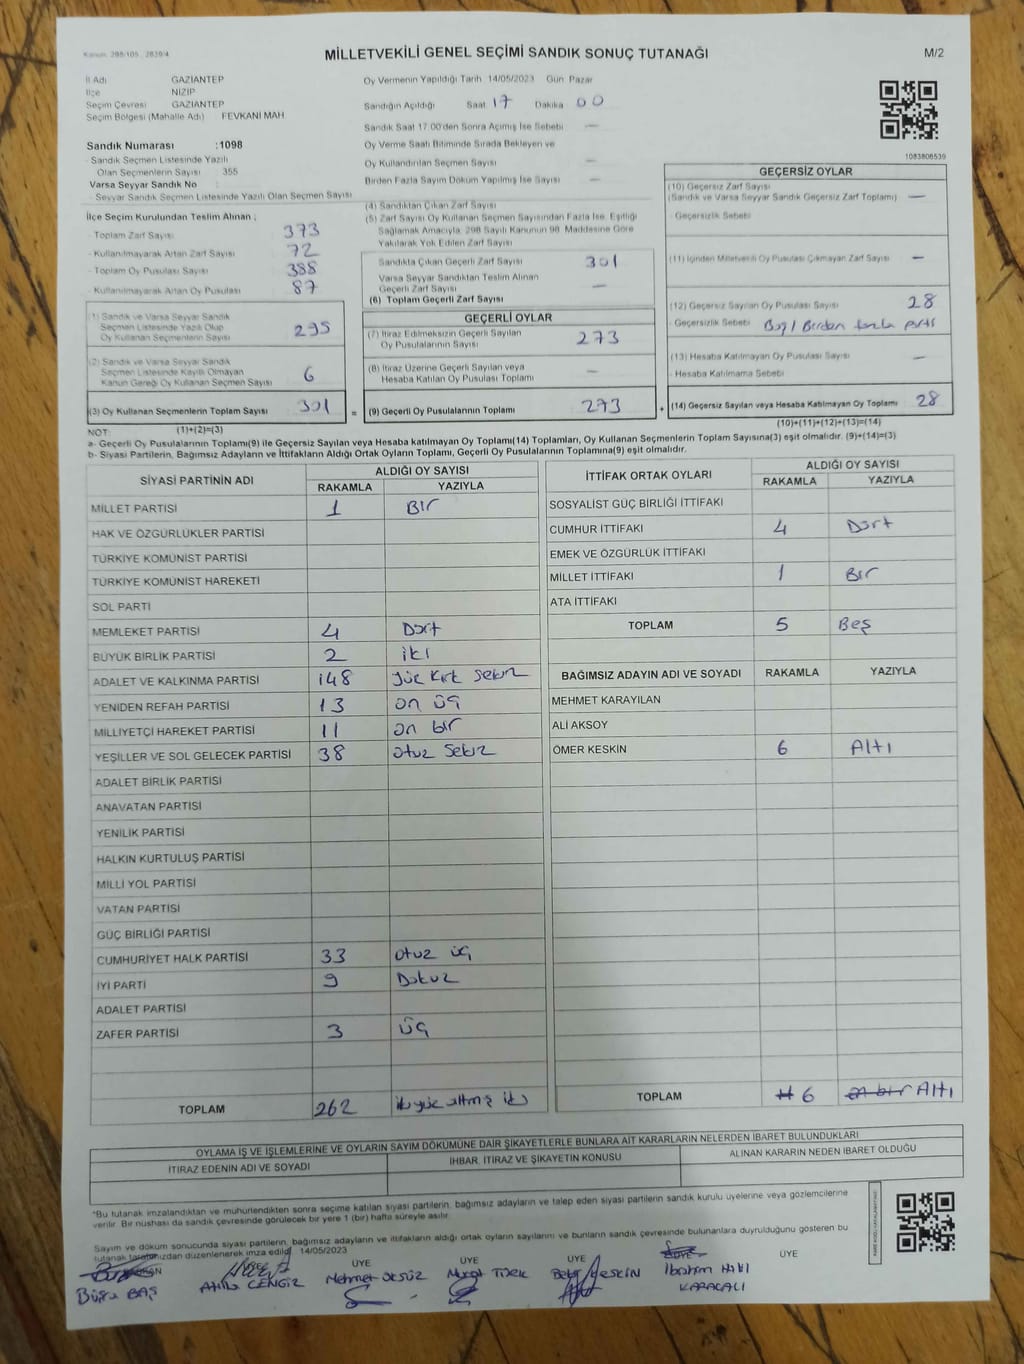 Kanun: 298/105 , 2839/4
MİLLETVEKİLİ GENEL SEÇİMİ SANDIK SONUÇ TUTANAĞI
M/2
İl Adı GAZİANTEP
İlçe NİZİP
Seçim Çevresi GAZİANTEP
Seçim Bölgesi (Mahalle Adı) FEVKANİ MAH
Sandık Numarası :1098
- Sandık Seçmen Listesinde Yazılı
Olan Seçmenlerin Sayısı : 355
Varsa Seyyar Sandık No :
- Seyyar Sandık Seçmen Listesinde Yazılı Olan Seçmen Sayısı
İlçe Seçim Kurulundan Teslim Alınan ;
- Toplam Zarf Sayısı 373
- Kullanılmayarak Artan Zarf Sayısı 72
- Toplam Oy Pusulası Sayısı 388
- Kullanılmayarak Artan Oy Pusulası 87
(1) Sandık ve Varsa Seyyar Sandık
Seçmen Listesinde Yazılı Olup
Oy Kullanan Seçmenlerin Sayısı 295
(2) Sandık ve Varsa Seyyar Sandık
Seçmen Listesinde Kayıtlı Olmayan
Kanun Gereği Oy Kullanan Seçmen Sayısı 6
(3) Oy Kullanan Seçmenlerin Toplam Sayısı 301 =
(1)+(2)=(3)
Oy Vermenin Yapıldığı Tarih 14/05/2023 Gün Pazar
Sandığın Açıldığı Saat 17 Dakika 00
Sandık Saat 17.00'den Sonra Açılmış İse Sebebi —
Oy Verme Saati Bitiminde Sırada Bekleyen ve
Oy Kullandırılan Seçmen Sayısı —
Birden Fazla Sayım Döküm Yapılmış İse Sayısı —
(4) Sandıktan Çıkan Zarf Sayısı
(5) Zarf Sayısı Oy Kullanan Seçmen Sayısından Fazla İse, Eşitliği
Sağlamak Amacıyla, 298 Sayılı Kanunun 98. Maddesine Göre
Yakılarak Yok Edilen Zarf Sayısı
Sandıkta Çıkan Geçerli Zarf Sayısı 301
Varsa Seyyar Sandıktan Teslim Alınan
Geçerli Zarf Sayısı —
(6) Toplam Geçerli Zarf Sayısı
GEÇERLİ OYLAR
(7) İtiraz Edilmeksizin Geçerli Sayılan
Oy Pusulalarının Sayısı 273
(8) İtiraz Üzerine Geçerli Sayılan veya
Hesaba Katılan Oy Pusulası Toplamı —
(9) Geçerli Oy Pusulalarının Toplamı 273 +
1083808539
GEÇERSİZ OYLAR
(10) Geçersiz Zarf Sayısı
(Sandık ve Varsa Seyyar Sandık Geçersiz Zarf Toplamı) —
- Geçersizlik Sebebi
(11) İçinden Milletvekili Oy Pusulası Çıkmayan Zarf Sayısı —
(12) Geçersiz Sayılan Oy Pusulası Sayısı 28
- Geçersizlik Sebebi Boş / Birden fazla parti
(13) Hesaba Katılmayan Oy Pusulası Sayısı —
- Hesaba Katılmama Sebebi
(14) Geçersiz Sayılan veya Hesaba Katılmayan Oy Toplamı 28
(10)+(11)+(12)+(13)=(14)
NOT:
a- Geçerli Oy Pusulalarının Toplamı(9) ile Geçersiz Sayılan veya Hesaba katılmayan Oy Toplamı(14) Toplamları, Oy Kullanan Seçmenlerin Toplam Sayısına(3) eşit olmalıdır. (9)+(14)=(3)
b- Siyasi Partilerin, Bağımsız Adayların ve İttifakların Aldığı Ortak Oyların Toplamı, Geçerli Oy Pusulalarının Toplamına(9) eşit olmalıdır.
SİYASİ PARTİNİN ADI ALDIĞI OY SAYISI
RAKAMLA YAZIYLA
MİLLET PARTİSİ 1 Bir
HAK VE ÖZGÜRLÜKLER PARTİSİ
TÜRKİYE KOMÜNİST PARTİSİ
TÜRKİYE KOMÜNİST HAREKETİ
SOL PARTİ
MEMLEKET PARTİSİ 4 Dört
BÜYÜK BİRLİK PARTİSİ 2 iki
ADALET VE KALKINMA PARTİSİ 148 yüz kırk sekiz
YENİDEN REFAH PARTİSİ 13 on üç
MİLLİYETÇİ HAREKET PARTİSİ 11 on bir
YEŞİLLER VE SOL GELECEK PARTİSİ 38 otuz sekiz
ADALET BİRLİK PARTİSİ
ANAVATAN PARTİSİ
YENİLİK PARTİSİ
HALKIN KURTULUŞ PARTİSİ
MİLLİ YOL PARTİSİ
VATAN PARTİSİ
GÜÇ BİRLİĞİ PARTİSİ
CUMHURİYET HALK PARTİSİ 33 otuz üç
İYİ PARTİ 9 Dokuz
ADALET PARTİSİ
ZAFER PARTİSİ 3 üç
TOPLAM 262 iki yüz altmış iki
İTTİFAK ORTAK OYLARI ALDIĞI OY SAYISI
RAKAMLA YAZIYLA
SOSYALİST GÜÇ BİRLİĞİ İTTİFAKI
CUMHUR İTTİFAKI 4 Dört
EMEK VE ÖZGÜRLÜK İTTİFAKI
MİLLET İTTİFAKI 1 Bir
ATA İTTİFAKI
TOPLAM 5 Beş
BAĞIMSIZ ADAYIN ADI VE SOYADI RAKAMLA YAZIYLA
MEHMET KARAYILAN
ALİ AKSOY
ÖMER KESKİN 6 Altı
TOPLAM 11 6 on bir Altı
OYLAMA İŞ VE İŞLEMLERİNE VE OYLARIN SAYIM DÖKÜMÜNE DAİR ŞİKAYETLERLE BUNLARA AİT KARARLARIN NELERDEN İBARET BULUNDUKLARI
İTİRAZ EDENİN ADI VE SOYADI İHBAR, İTİRAZ VE ŞİKAYETİN KONUSU ALINAN KARARIN NEDEN İBARET OLDUĞU
*Bu tutanak imzalandıktan ve mühürlendikten sonra seçime katılan siyasi partilerin, bağımsız adayların ve talep eden siyasi partilerin sandık kurulu üyelerine veya gözlemcilerine
verilir. Bir nüshası da sandık çevresinde görülecek bir yere 1 (bir) hafta süreyle asılır.
Sayım ve döküm sonucunda siyasi partilerin, bağımsız adayların ve ittifakların aldığı ortak oyların sayılarını ve bunların sandık çevresinde bulunanlara duyurulduğunu gösteren bu
tutanak tarafımızdan düzenlenerek imza edildi. 14/05/2023
BAŞKAN ÜYE ÜYE ÜYE ÜYE ÜYE ÜYE
Büşra BAŞ Atilla CENGİZ Mehmet ÖKSÜZ Murat Tibek Bekir KESKİN İbrahim Halil
KARACALI